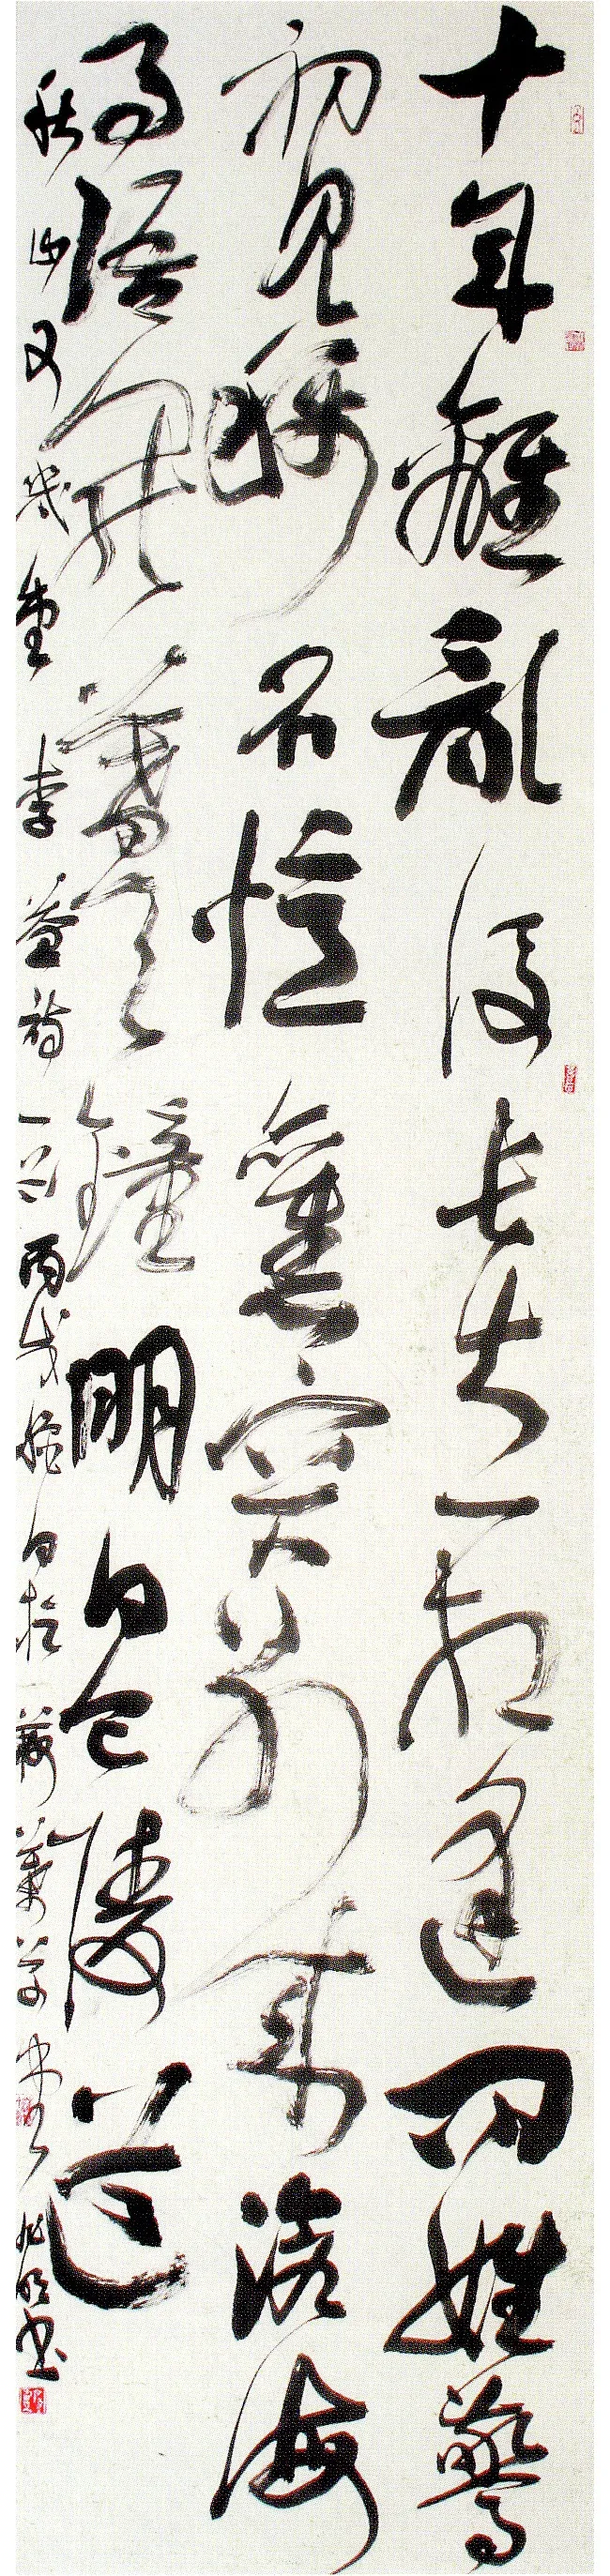 十年離亂後長大一相逢問姓驚
初見稱名憶舊容別來滄海
事語罷暮天鐘明日巴陵道
秋山又幾重 李益詩一首丙戌 草堂 書